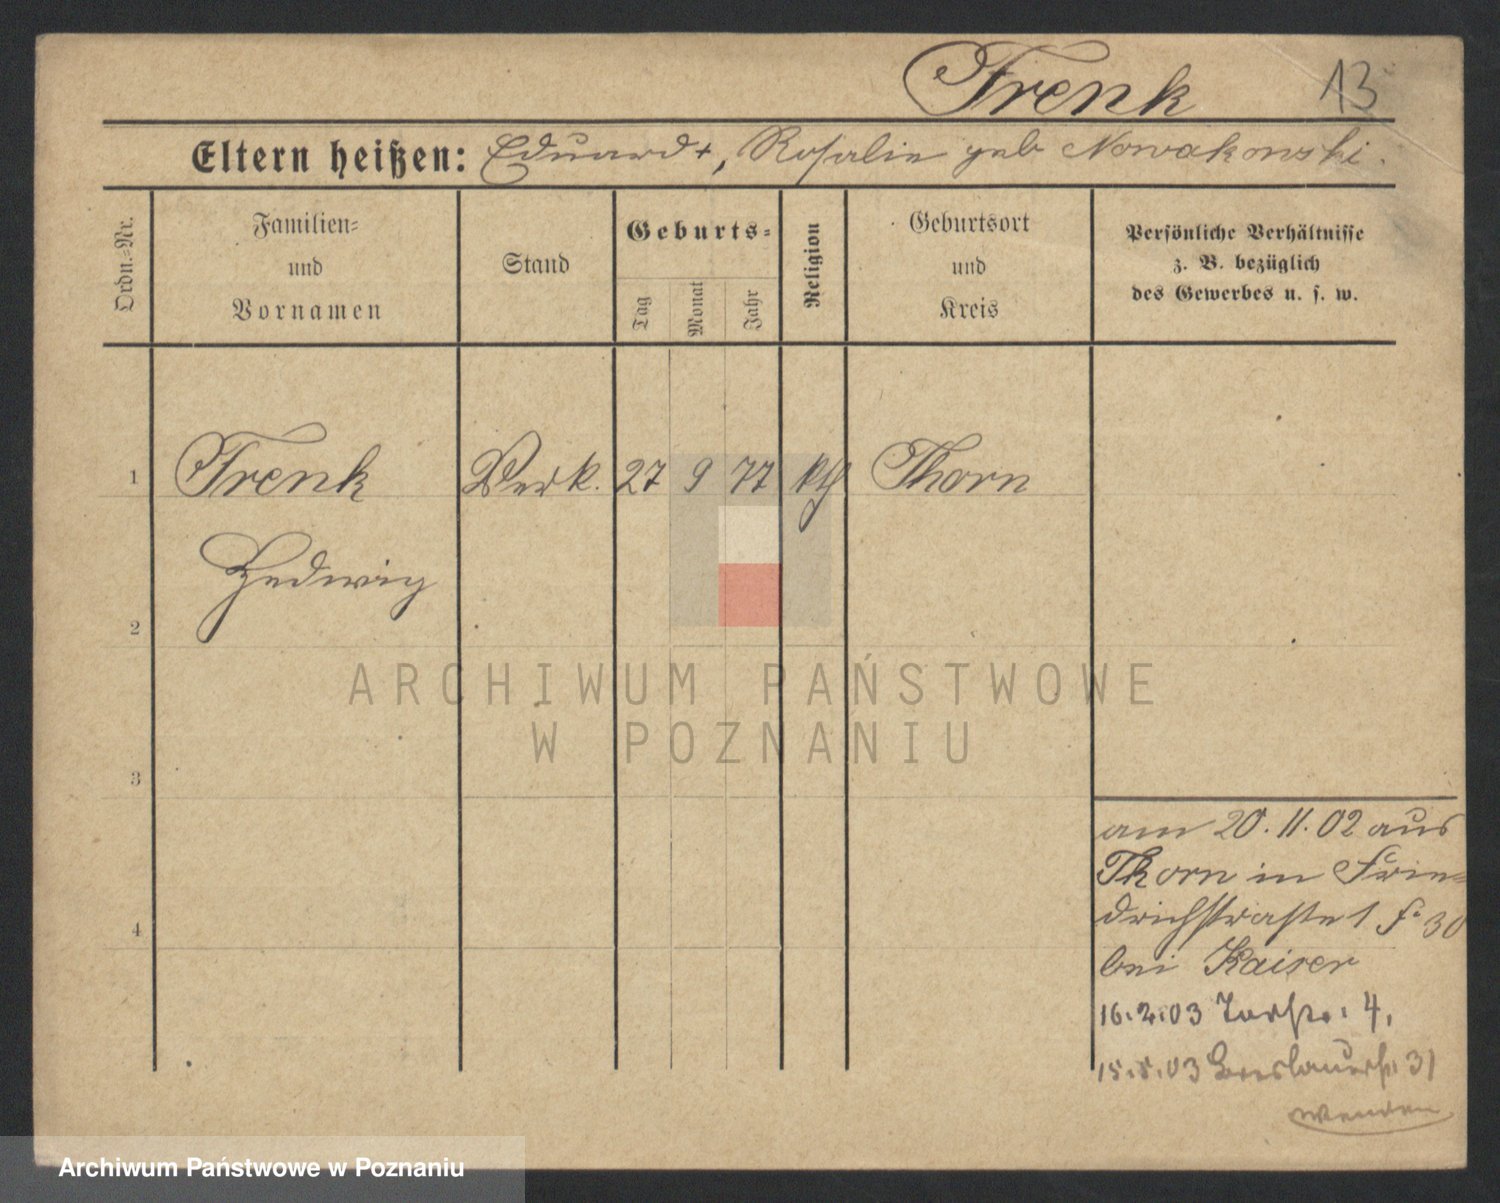 Frenk 13
Eltern heißen: Eduard +, Rosalie geb Nowakowski.
Ordn.-Nr.
Familien-
und
Vornamen
Stand
Geburts-
Tag
Monat
Jahr
Religion
Geburtsort
und
Kreis
Persönliche Verhältnisse
z. B. bezüglich
des Gewerbes u. s. w.
1 Frenk Verk. 27 9 77 kth Thorn
Hedwig
2
3
4
am 20.11.02 aus
Thorn in Frie-
drichstraße 1 f. 30
bei Kaiser
16.2.03 Torstr. 4.
15.5.03 Breslauerstr 31
wenden
ARCHIWUM PAŃSTWOWE
W POZNANIU
Archiwum Państwowe w Poznaniu